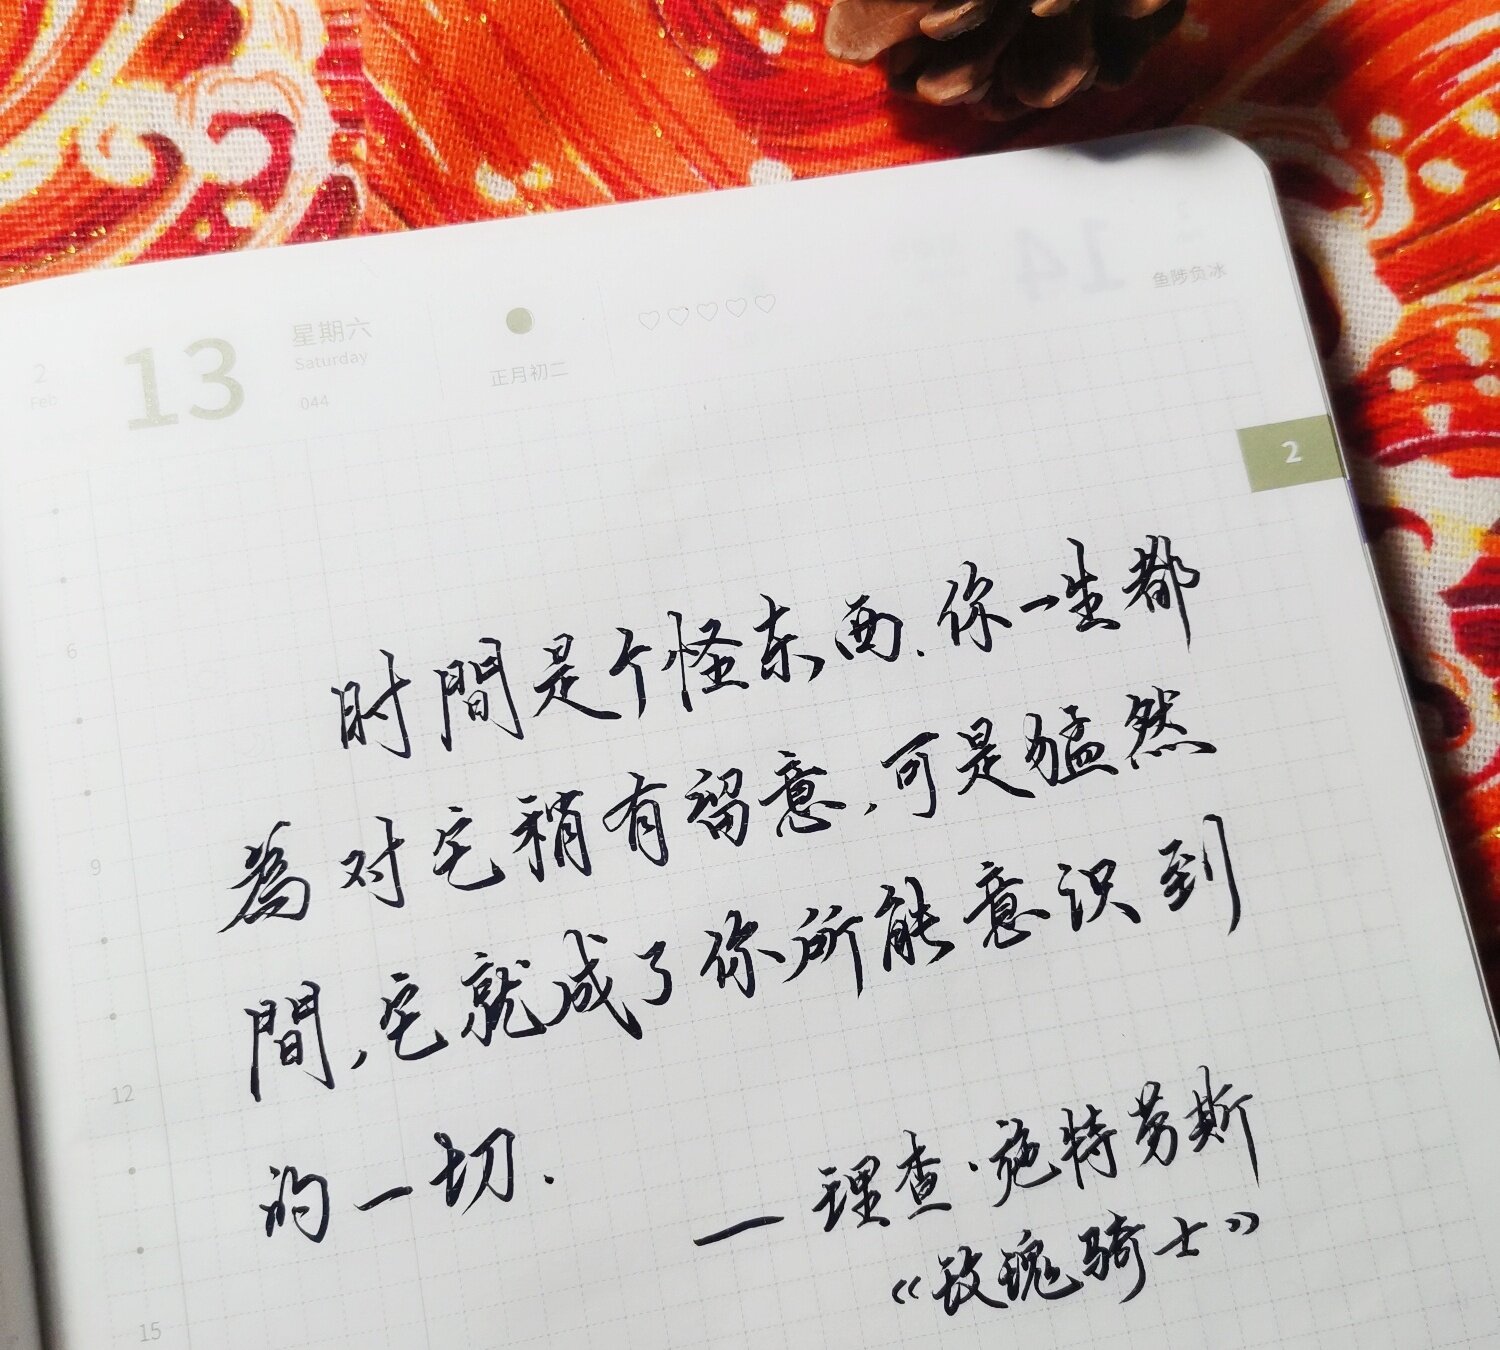 2
Feb
13
星期六
Saturday
044
正月初二
14
鱼陟负冰
2
6
9
12
15
时間是个怪东西.你一生都
為对它稍有留意,可是猛然
間,它就成了你所能意识到
的一切.
——理查·施特劳斯
《玫瑰骑士》